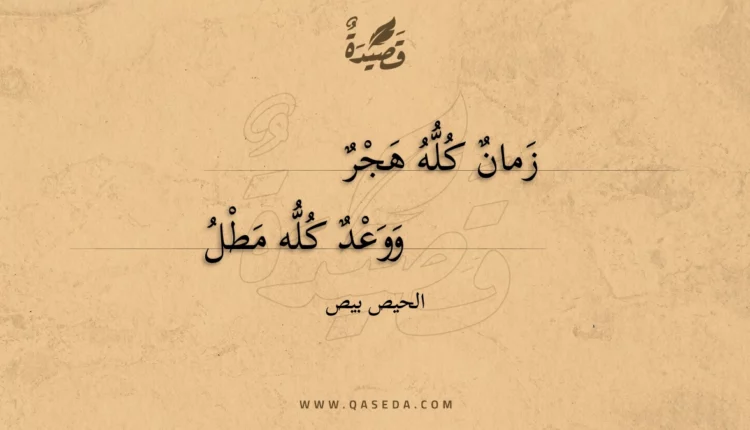 قَصِيدَةٌ
زَمانٌ كُلُّهُ هَجْرٌ
وَوَعْدٌ كُلُّه مَطْلُ
الحيص بيص
WWW.QASEDA.COM